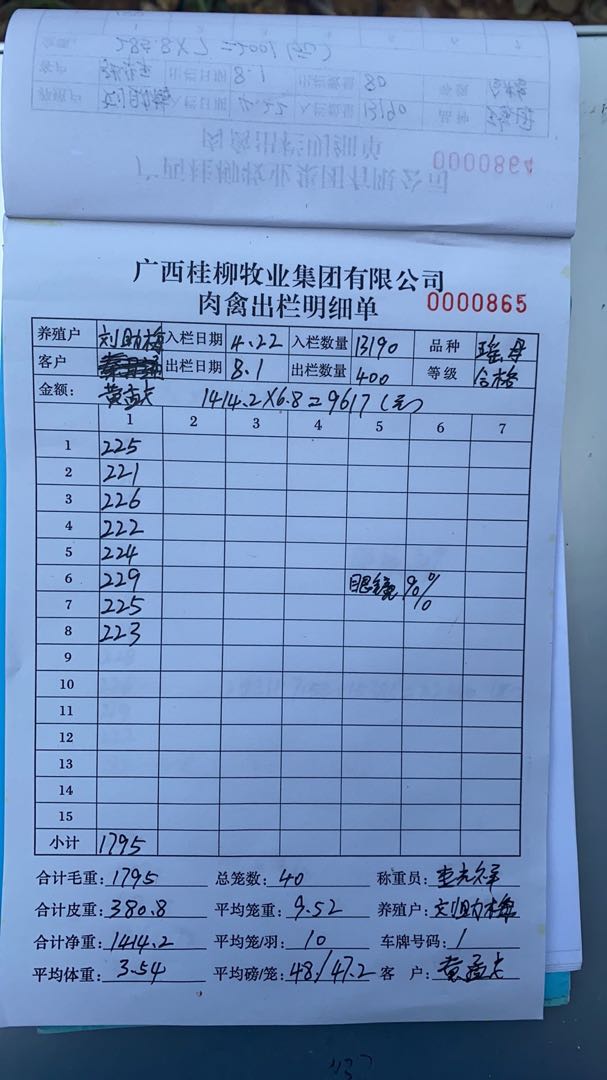 0000864
广西桂柳牧业集团有限公司
肉禽出栏明细单 0000865
养殖户 刘助梅 入栏日期 4.22 入栏数量 13190 品种 瑶母
客户 出栏日期 8.1 出栏数量 400 等级 合格
金额: 黄孟 1414.2×6.8=9617(元)
1 2 3 4 5 6 7
1 225
2 221
3 226
4 222
5 224
6 229 眼镜90%
7 225
8 223
9
10
11
12
13
14
15
小计 1795
合计毛重: 1795 总笼数: 40 称重员:
合计皮重: 380.8 平均笼重: 9.52 养殖户: 刘助梅
合计净重: 1414.2 平均笼/羽: 10 车牌号码: 1
平均体重: 3.54 平均磅/笼: 48/47.2 客 户: 黄孟